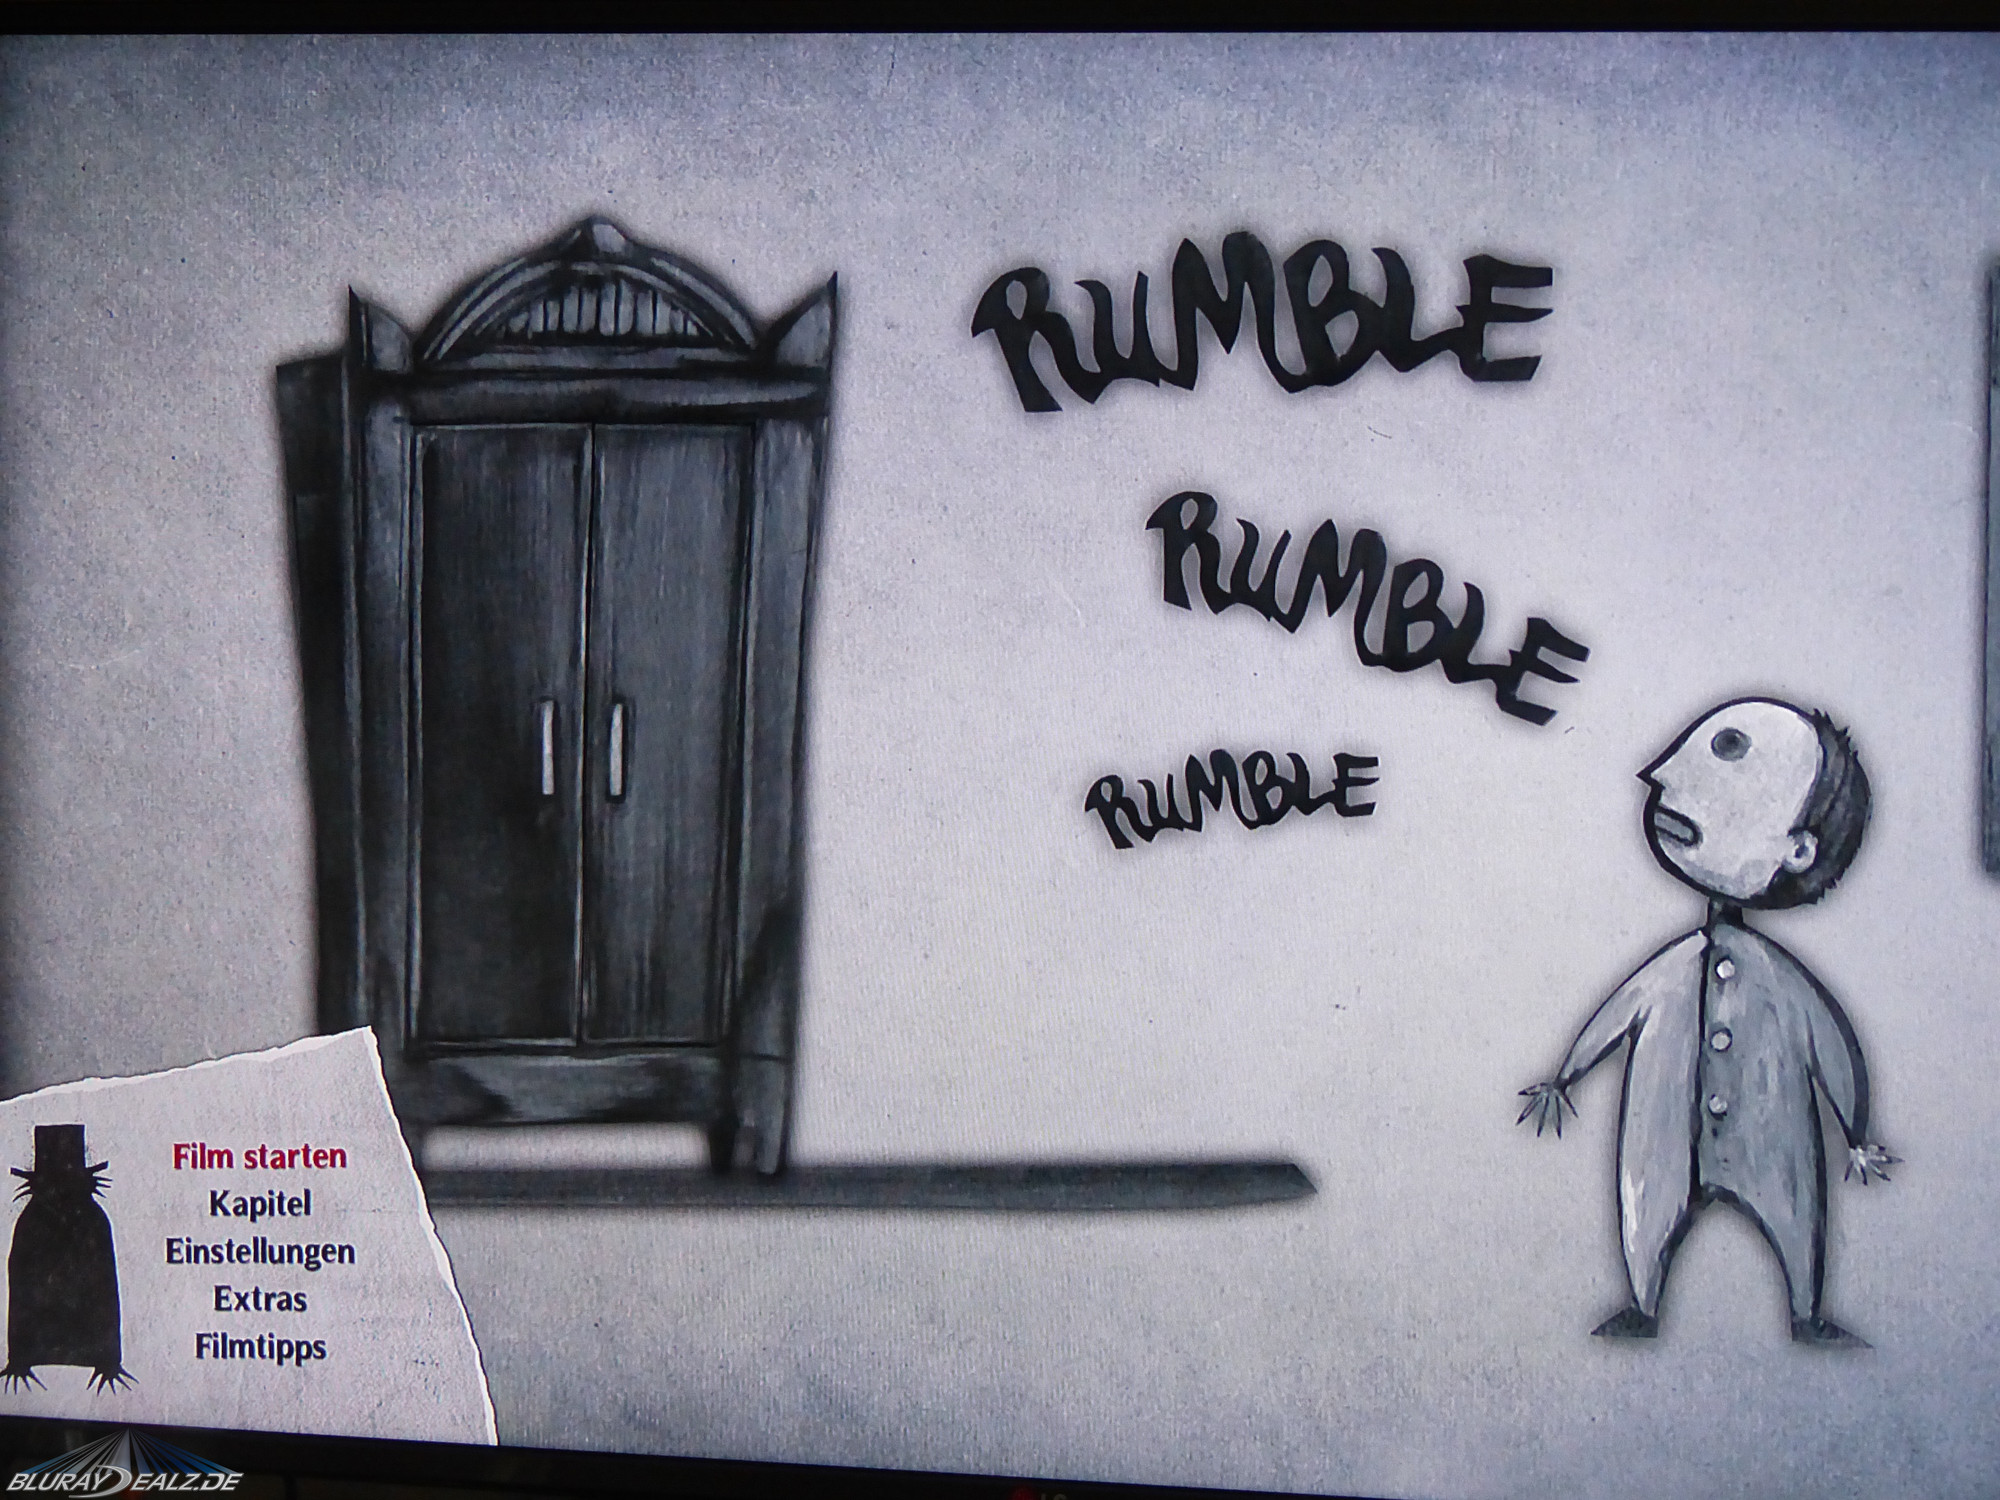 RUMBLE
RUMBLE
RUMBLE
Film starten
Kapitel
Einstellungen
Extras
Filmtipps
BLURAYDEALZ.DE